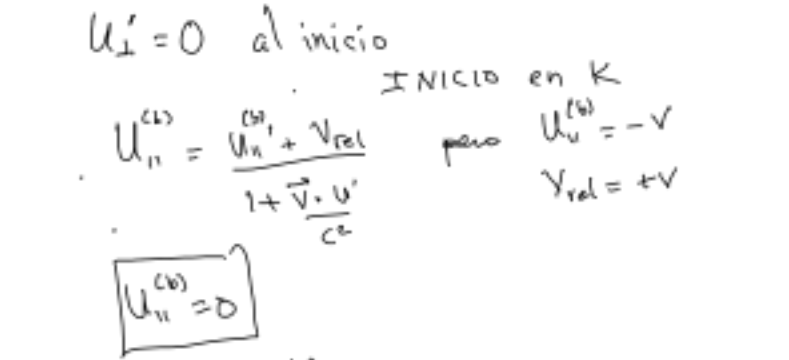 U'⊥ = 0 al inicio
INICIO en K
U∥^(b) = (U∥^(b)' + Vrel) / (1 + V⃗·U'/c²) pero U∥^(b) = -V
Vrel = +V
U∥^(b) = 0